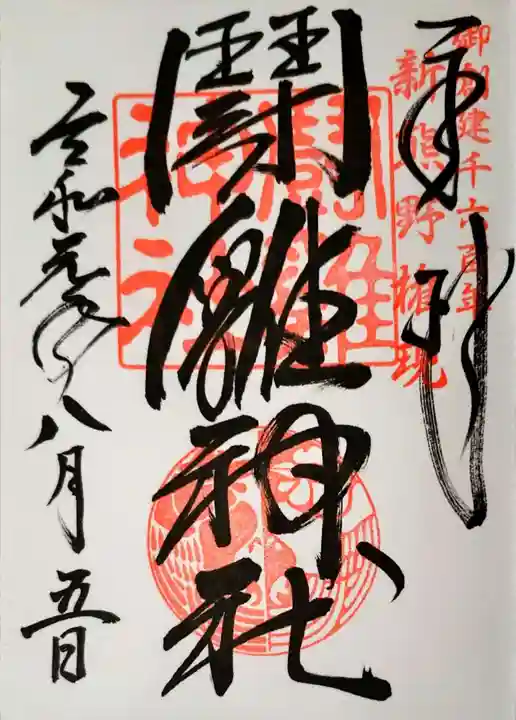 奉拝
御創建千六百年
新熊野権現
闘雞神社
闘雞神社
令和元年八月五日